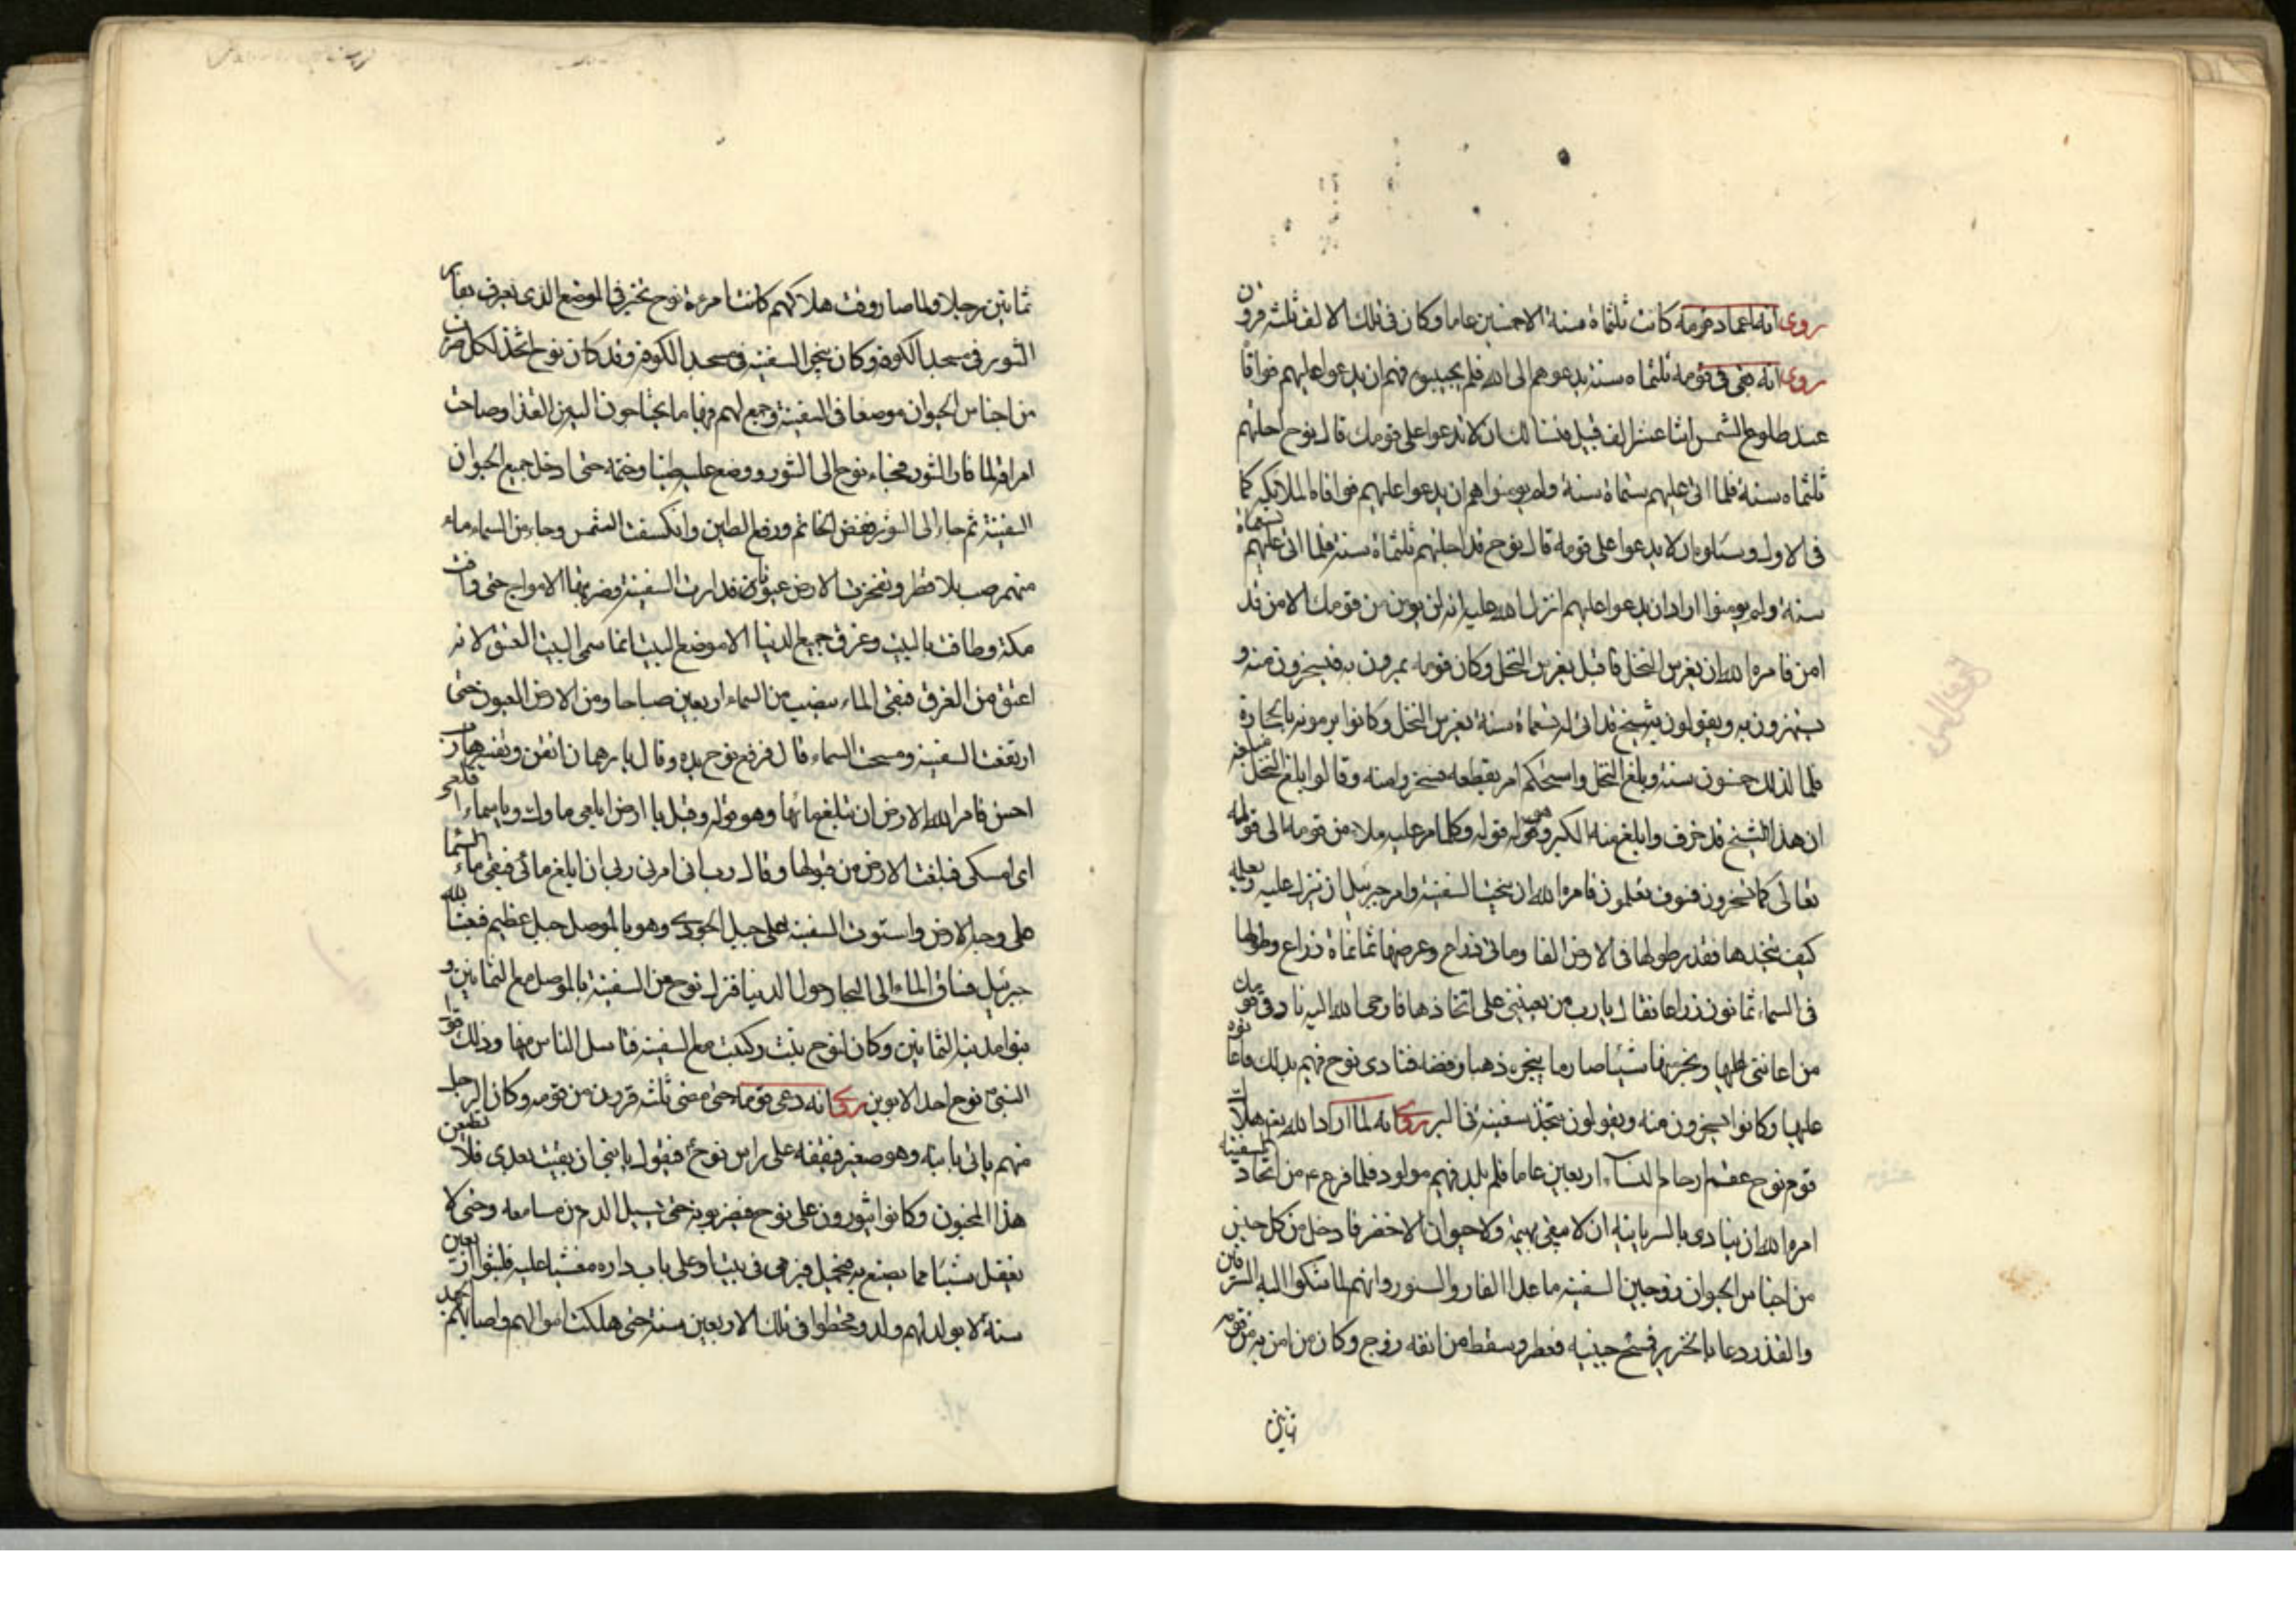 روى انه اعمار قومه كانت ثلثماة سنة الا خمسين عاما وكان فى تلك الالف ثلثة قرون
روى انه بقى فى قومه ثلثماه سنة يدعوهم الى الله فلم يجيبوه فهم ان يدعوا عليهم فوافا
عند طلوع الشمس اثنا عشر الف قبيل فسئالك ان لا تدعوا على قومك قال نوح اجلتهم
ثلثماه سنة فلما اتى عليهم ستماة سنة ولم يومنوا هم ان يدعوا عليهم فوافاه الملائكة كما
فى الاول وسئلوه ان لا يدعوا على قومه قال نوح قد اجلتهم ثلثماة سنة فلما اتى عليهم تسعماة
سنة ولم يومنوا اراد ان يدعوا عليهم انزل الله عليه انه لن يومن من قومك الا من قد
امن فامره الله ان يغرس النخل فاقبل يغرس النخل وكان قومه يمرون به فيسخرون منه و
يستهزون به ويقولون شيخ قد اتى له تسعماة سنة يغرس النخل وكانوا يرمونه بالحجارة
فلما اتى لذلك خمسون سنة وبلغ النخل واستحكم امر بقطعه فسخروا منه وقالوا بلغ النخل مبلغه
ان هذا الشيخ قد خرف وابلغ منه الكبر وهو قوله وكلما مر عليه ملاء من قومه الى قوله
تعالى كما تسخرون فسوف تعلمون فامره الله ان ينحت السفينة وامر جبرئيل ان ينزل عليه ويعلمه
كيف يتخذها فقدر طولها فى الارض الفا وماتى ذراع وعرضها ثمانماة ذراع وطولها
فى السماء ثمانون ذراعا فقال يارب من يعيننى على اتخاذها فاوحى الله اليه ناد فى قومك
من اعاننى عليها وينجر منها شيئا صار ما ينجره ذهبا وفضة فنادى نوح فيهم بذلك فاعانوه
عليها وكانوا يسخرون منه ويقولون يتخذ سفينة فى البر روى انه لما اراد الله تع هلاك
قوم نوح عقم ارحام النساء اربعين عاما فلم يلد فيهم مولود فلما فرغ من اتخاذ السفينة
امره الله ان ينادى بالسريانية ان لا يبقى بهيمة ولا حيوان الا حضر فادخل من كل جنس
من اجناس الحيوان زوجين السفينة ما عدا الفار والسنور وانهم لما شكوا اليه السرقين
والقذر دعا بالخنزير فمسح جبينه فعطر وسقط من انفه زوج وكان من امن به من قومه
ثمانين
ثمانين رجلا ولما صار وقت هلاكهم كانت امرءة نوح تخبز فى الموضع الذى يعرف بفار
التنور فى مسجد الكوفة وكان ينجر السفينة فى مسجد الكوفة وقد كان نوح اتخذ لكل ضرب
من اجناس الحيوان موضعا فى السفينة وجمع لهم فيها ما يحتاجون اليه من الغذا وصاحت
امراته لما فار التنور فجاء نوح الى التنور ووضع عليه طينا وختمه حتى ادخل جميع الحيوان
السفينة ثم جاء الى التنور ففض الخاتم ورفع الطين وانكسفت الشمس وجاء من السماء ماء
منهمر صب بلا قطر وتفجرت الارض عيونا فدارت السفينة وضربتها الامواج حتى وافت
مكة وطافت بالبيت وغرق جميع الدنيا الا موضع البيت انما سمى البيت العتيق لانه
اعتق من الغرق فبقى الماء ينصب من السماء اربعين صباحا ومن الارض العيون حتى
ارتفعت السفينة ومسحت السماء قال فرفع نوح يده وقال يا رهمان اتقن وتفسيرها رب
احسن فامر الله الارض ان تبلغ مائها وهو قوله وقيل يا ارض ابلعى ماءك ويا سماء اقلعى
اى امسكى فبلغت الارض من قبولها وقال رب انى امرنى ربى ان ابلغ مائى فبقى ماء السماء
على وجه الارض واستوت السفينة على جبل الجودى وهو بالموصل جبل عظيم فبعث الله
جبرئيل فساق الماء الى البحار حول الدنيا فنزل نوح من السفينة بالموصل مع الثمانين و
بنوا مدينة الثمانين وكان لنوح بنت ركبت مع السفينة فتناسل الناس منها وذلك قول
النبى نوح احد الابوين روى انه دعى قومه حتى مضى ثلثة قرون من قومه وكان الرجل
منهم ياتى بابنه وهو صغير فيقفه على راس نوح فيقول يابنى ان بقيت بعدى فلا تطيعن
هذا المجنون وكانوا يثورون على نوح فيضربونه حتى يسيل الدم من مسامعه وحتى لا
يعقل شيئا مما يصنع به فيحمل فيرمى فى بيت او على باب داره مغشيا عليه فلبثوا اربعين
سنة لا يولد لهم ولد وقحطوا فى تلك الاربعين سنة حتى هلكت اموالهم واصابهم الجهد